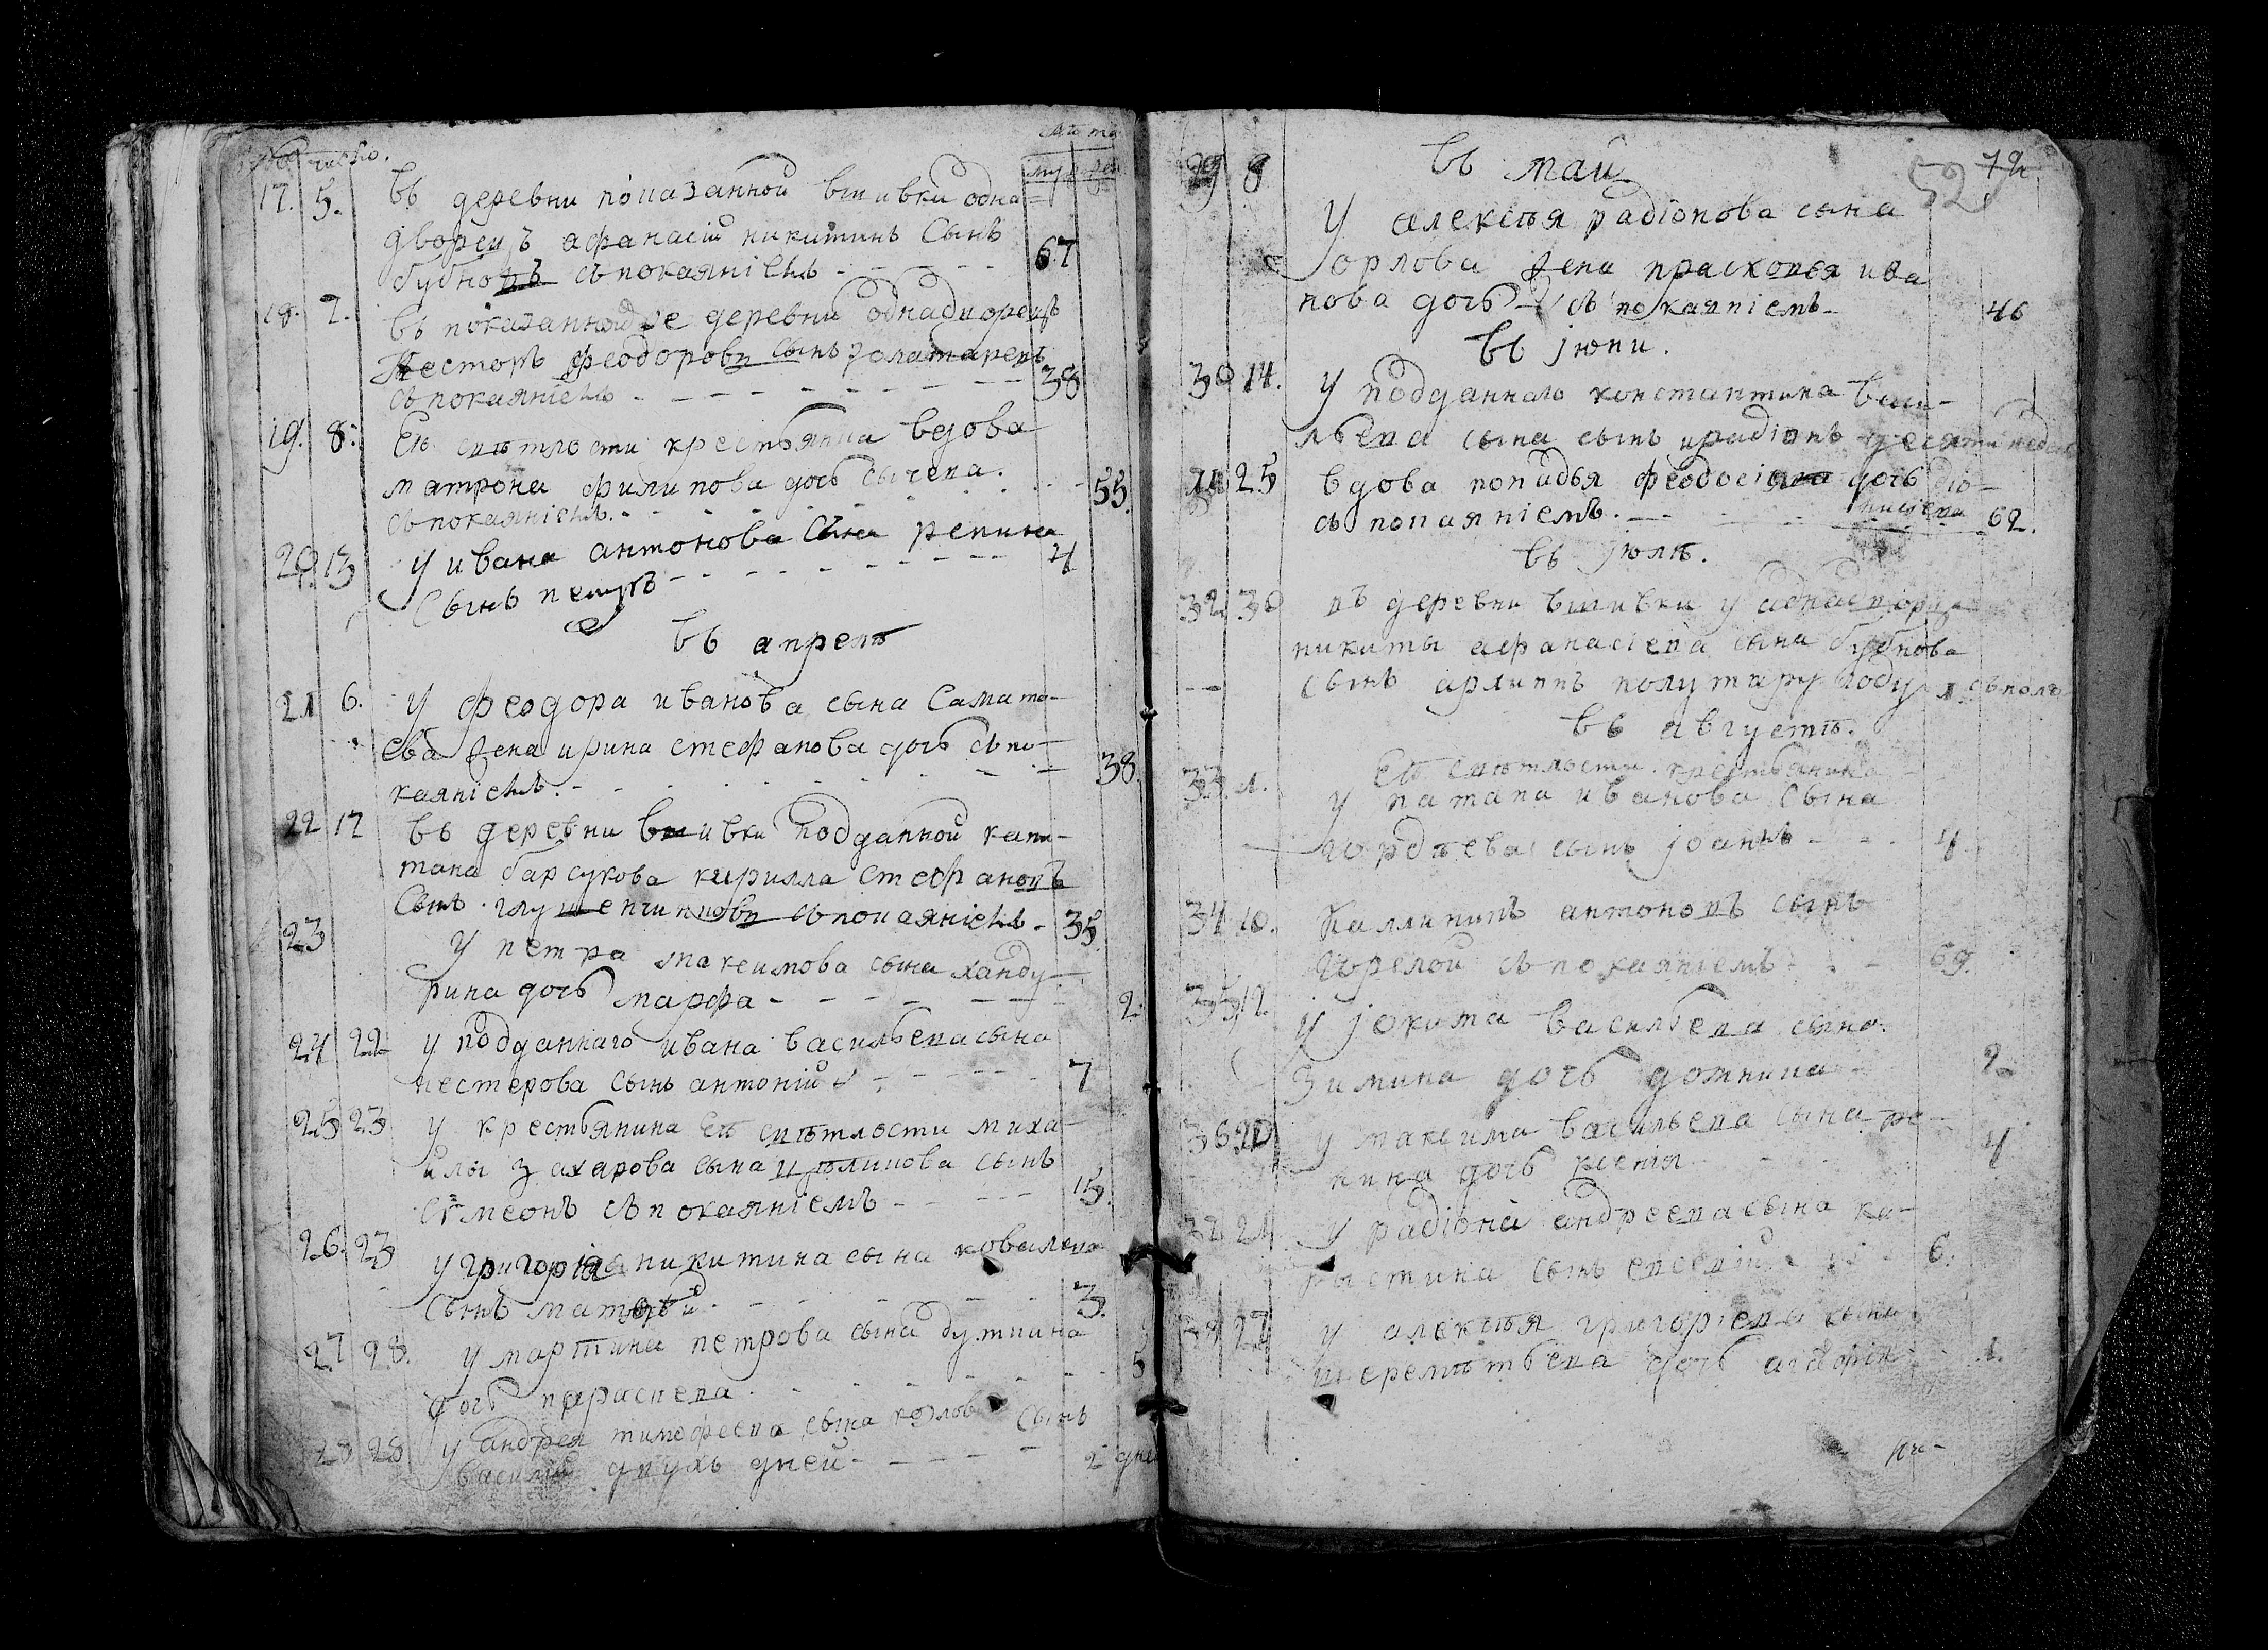 число. лѣта
муж жен
17. 5. въ деревни показанной вшивки одна=
дворецъ афанасій никитинъ сынъ
бубновъ съ покаяніемъ - - - - 67
18. 7. въ показанной же деревни однадворецъ
Несторъ феодоровъ сынъ золатаревъ
съ покаяніемъ - - - - - - 38
19. 8: Ея свѣтлости крестьянка вдова
матрона филипова дочь сычева.
съ покаяніемъ. - - - - - 55.
20. 13 У ивана антонова сына репина
сынъ петръ - - - - - - 4
въ апрелѣ
21 6. у феодора иванова сына Самато-
ева жена ирина стефанова дочь съ по-
каяніемъ. - - - - - - 38.
22 17 въ деревни вшивки подданной капи-
тана барсукова кирилла стефановъ
сынъ съ покаяніемъ - 35
23 У петра максимова сына ханду-
рина дочь марфа - - - - - 2.
24 22 у подданнаго ивана васильева сына
нестерова сынъ антоній - - - - 7
25 23 у крестьянина ея свѣтлости миха-
илы захарова сына сынъ
Сѵмеонъ съ покаяніемъ - - - - 15.
26. 23 у григорія никитина сына ковалева
сынъ матѳей - - - - - 3.
27 28. у мартина петрова сына
дочь параскева. - - - - - 5
28 28 у андрея тимофеева сына козлова сынъ
василій двухъ дней - - - - 2 дне
52 72.
29 8 въ маи
У алексѣя радіонова сына
орлова жена прасковья ива
нова дочь съ покаяніемъ - 46
въ іюни.
30 14. У подданнаго константина васи-
льева сына сынъ иродіонъ десяти недель
31 25 вдова попадья феодосія дочь діо-
съ покаяніемъ. - - - нисіева 62.
въ іюлѣ.
32. 30 въ деревни вшивки у аднадворца
никиты афанасіева сына бубнова
сынъ архиппъ полутару году 1 съ пол
въ августѣ.
33. 1. Ея свѣтлости крестьянина
у патапа иванова сына
гордѣева сынъ іоаннъ - - - 4.
34 10. Каллиникъ антоновъ сынъ
Горелой съ покаяніемъ - - 69.
35 12. у іокима васильева сына
Зимина дочь домника - 2
36 20 у максима васильева сына ре-
пина дочь ксенія - - 4
37 21 у радіона андреева сына ка-
рыстина сынъ евсевій - - 6.
38 27 у алексѣя григоріева сына
шереметьева дочь - 1.